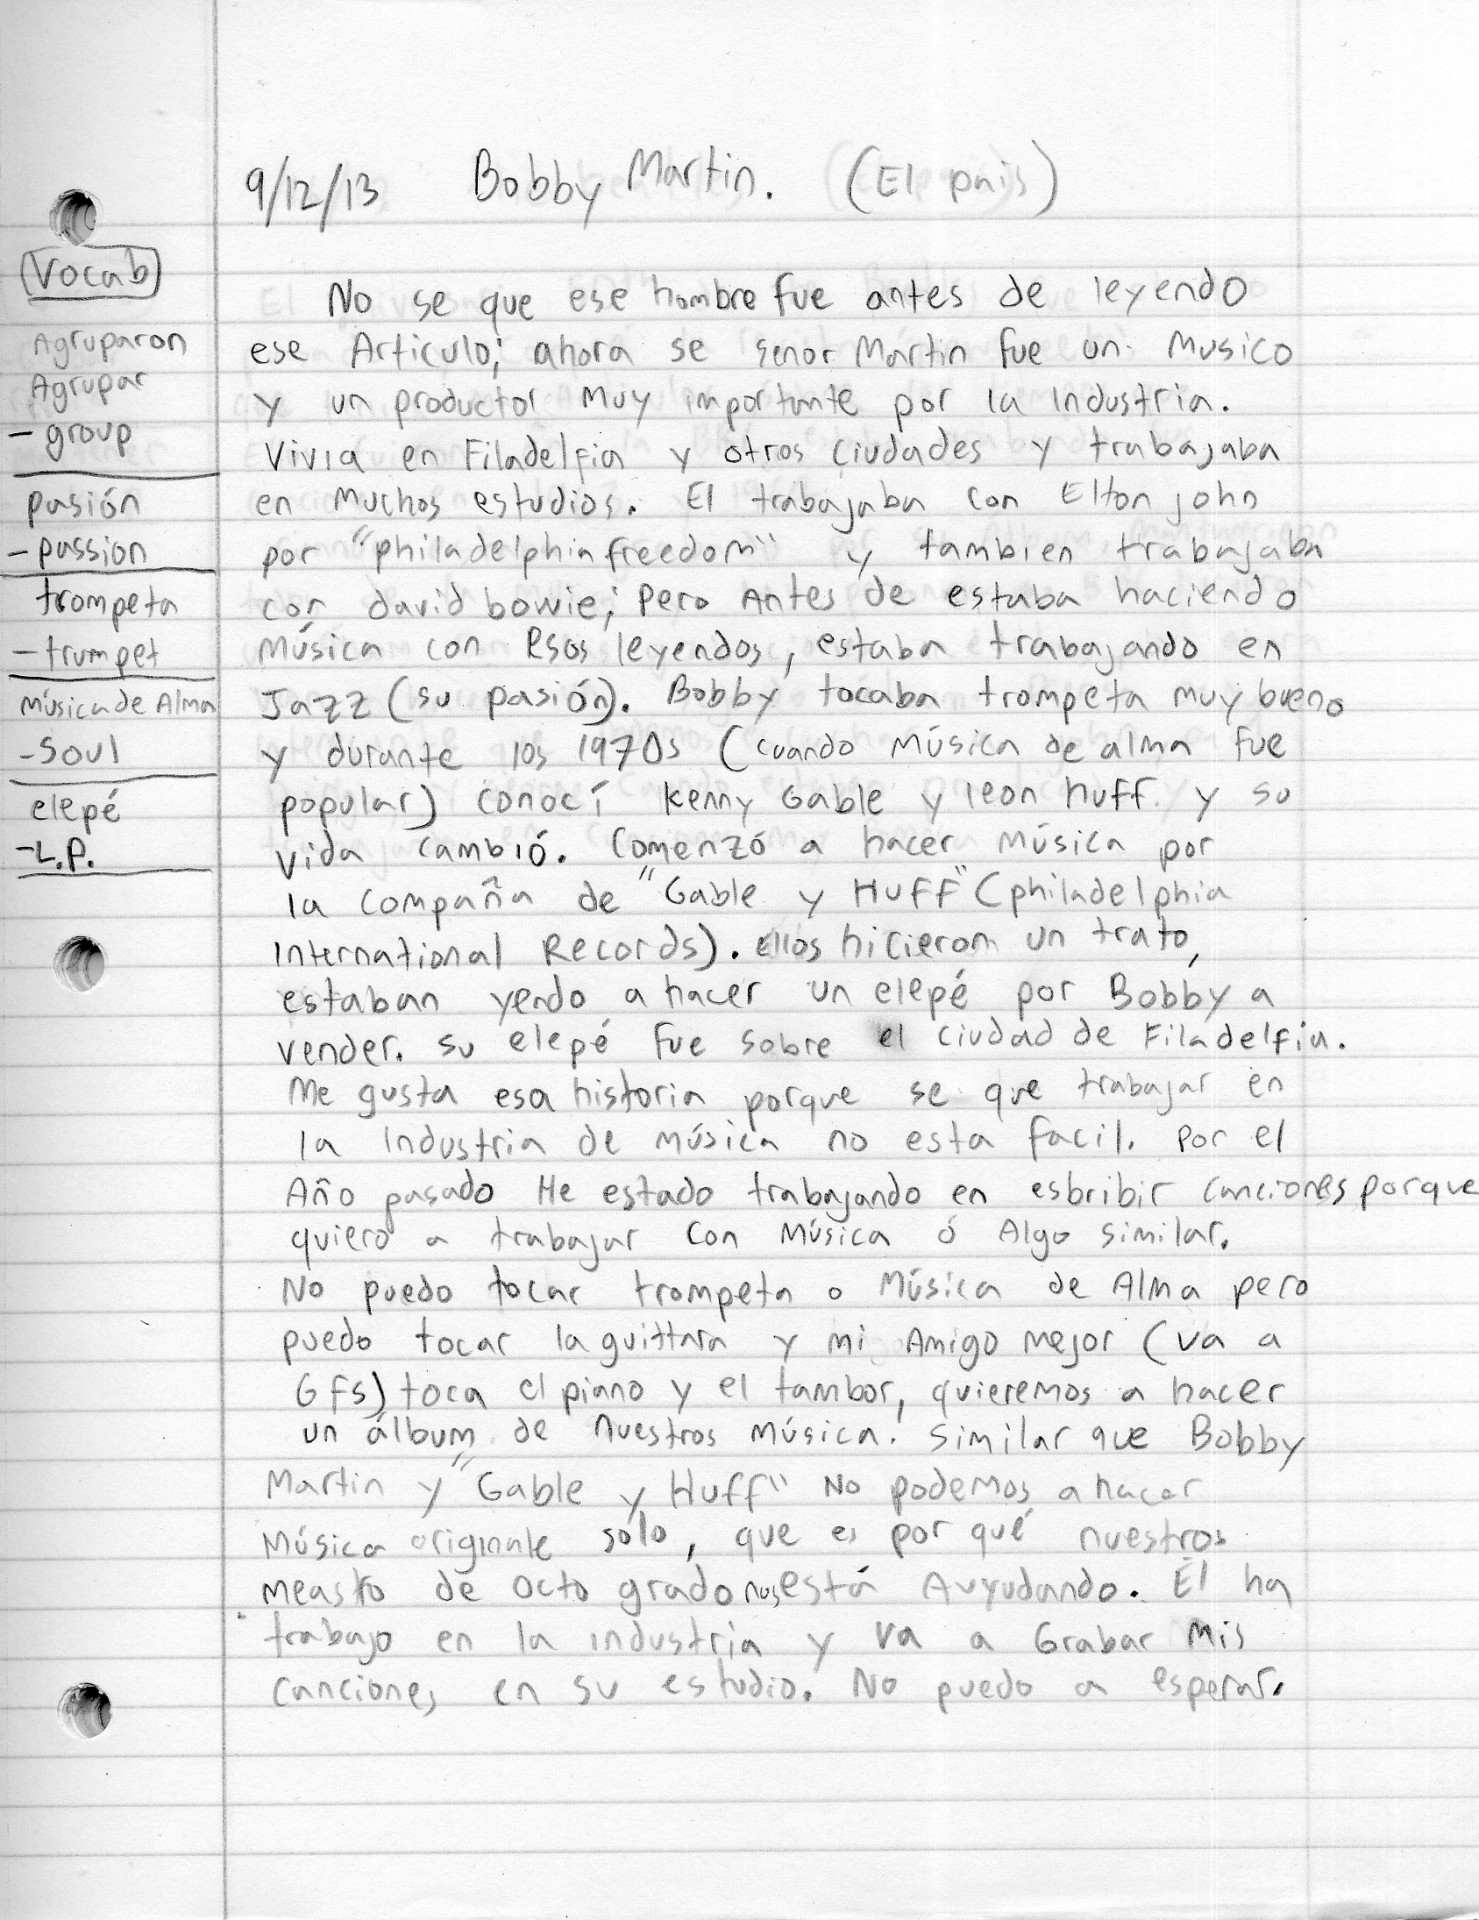 9/12/13 Bobby Martin. (El pais)
Vocab
Agruparon
Agrupar
- group
pasión
- passion
trompeta
- trumpet
música de Alma
- Soul
elepé
- L.P.
No se que ese hombre fue antes de leyendo
ese Articulo; ahora se senor Martin fue un musico
y un productor muy importante por la industria.
Vivia en Filadelfia y otros ciudades y trabajaba
en muchos estudios. El trabajaba con Elton john
por "philadelphia freedom" y tambien trabajaba
con david bowie; pero Antes de estaba haciendo
Música con esos leyendos, estaba trabajando en
Jazz (su pasión). Bobby tocaba trompeta muy bueno
y durante los 1970s (cuando música de alma fue
popular) conocí kenny Gable y leon huff y su
vida cambió. Comenzó a hacer Música por
la compaña de "Gable y Huff" (philadelphia
International Records). Ellos hicieron un trato,
estaban yendo a hacer un elepé por Bobby a
vender. su elepé fue sobre el ciudad de Filadelfia.
Me gusta esa historia porque se que trabajar en
la industria de música no esta facil. Por el
Año pasado He estado trabajando en esbribir canciones porque
quiero a trabajar con Música ó Algo similar.
No puedo tocar trompeta o Música de Alma pero
puedo tocar la guittara y mi Amigo mejor (va a
GFS) toca el piano y el tambor, quieremos a hacer
un álbum de nuestros música. Similar que Bobby
Martin y "Gable y Huff" No podemos a hacer
Música originale sólo, que es por qué nuestros
measto de octo grado nos está Avyudando. El ha
trabajo en la industria y va a Grabar mis
canciones en su estudio. No puedo a esperar.